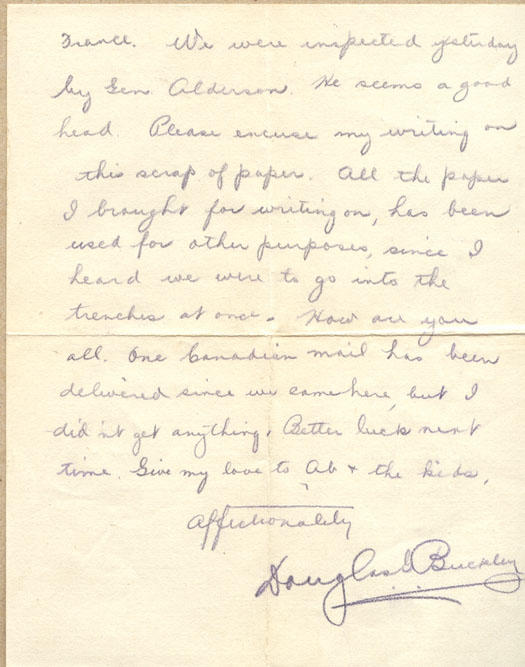 France. We were inspected yesterday
by Gen. Alderson. He seems a good
head. Please excuse my writing on
this scrap of paper. All the paper
I brought for writing on, has been
used for other purposes, since I
heard we were to go into the
trenches at once. How are you
all. One Canadian mail has been
delivered since we came here, but I
did'nt get anything. Better luck next
time. Give my love to Ab + the kids,
Affectionately
Douglas G Buckley